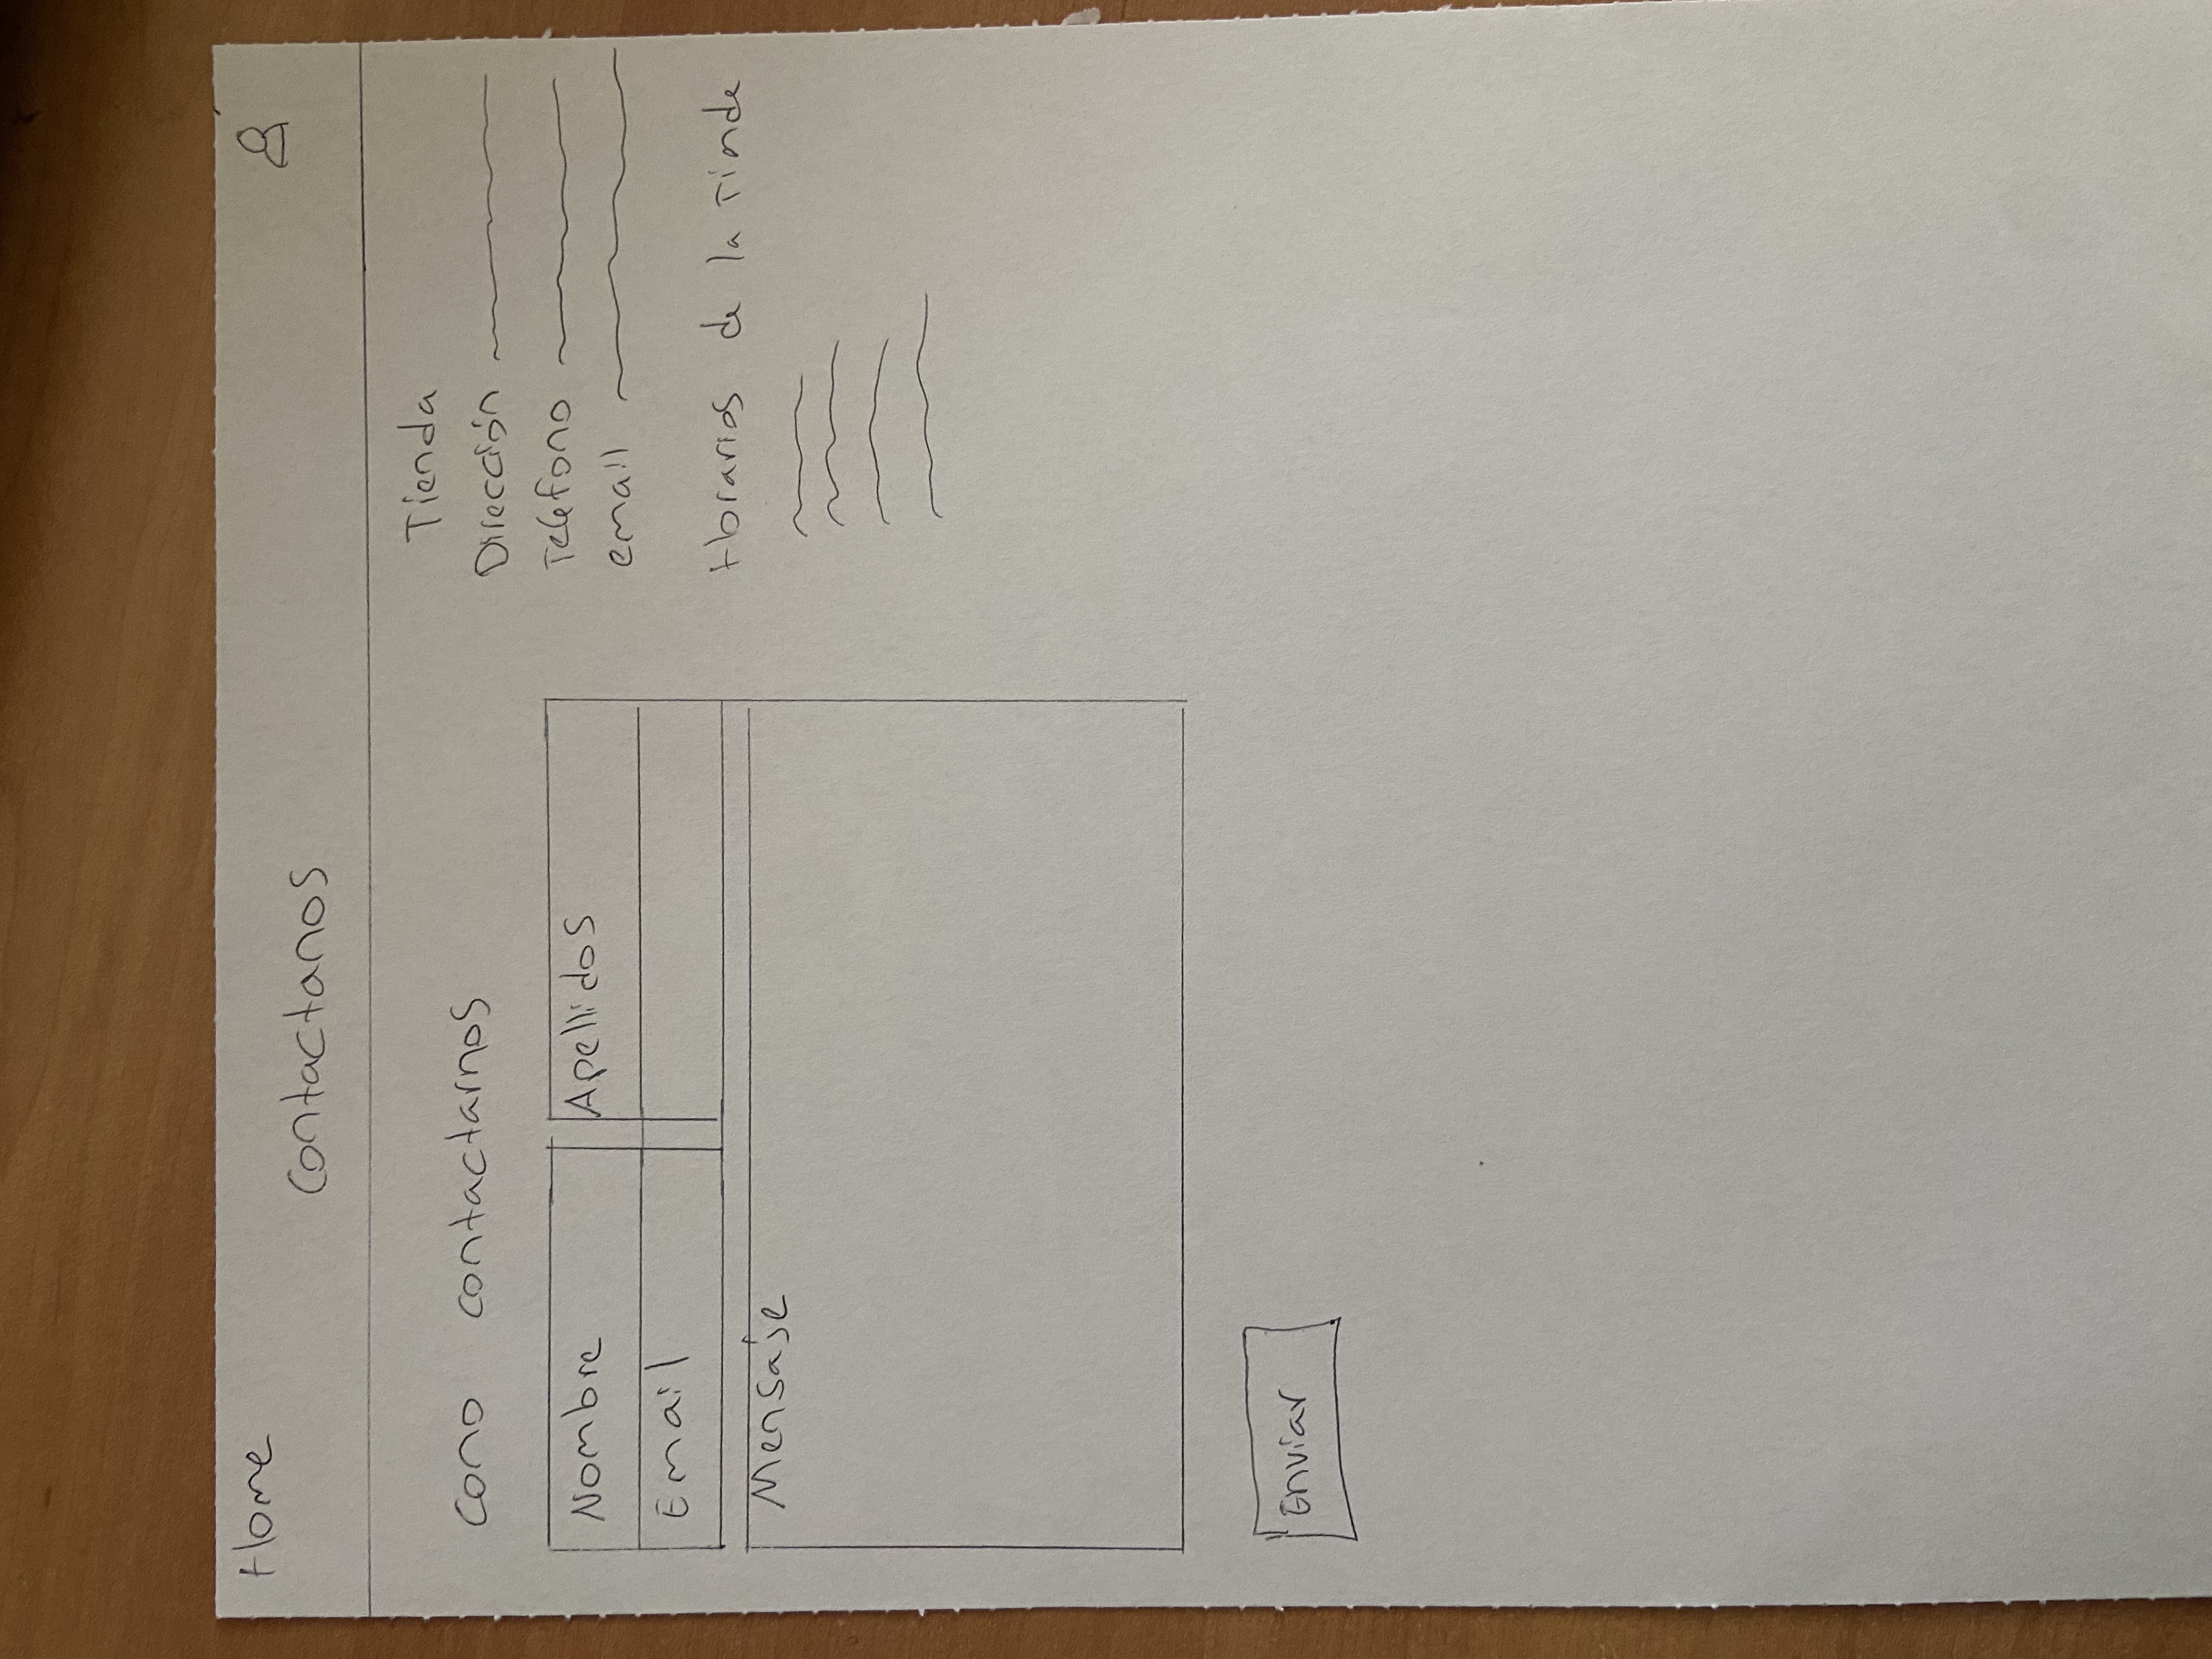 Home
Contactanos
Como contactarnos
Nombre
Apellidos
Email
Mensaje
Enviar
Tienda
Dirección
Teléfono
email
Horarios de la Tienda